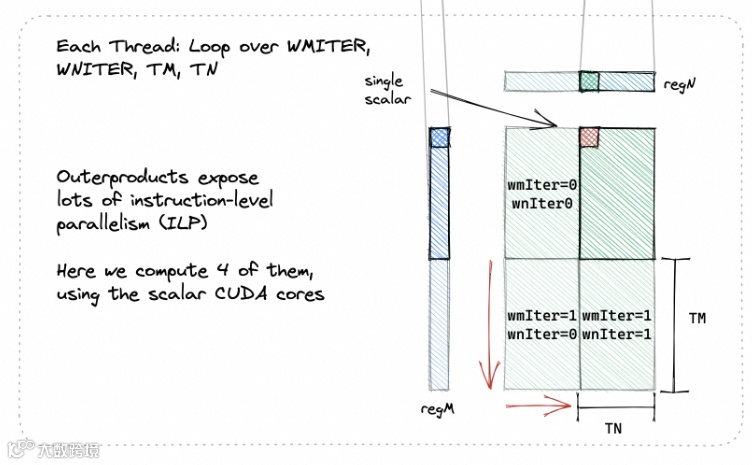 Each Thread: Loop over WMITER,
WNITER, TM, TN
single
scalar
regN
Outerproducts expose
lots of instruction-level
parallelism (ILP)
wmIter=0
wnIter0
Here we compute 4 of them,
using the scalar CUDA cores
wmIter=1
wnIter=0
wmIter=1
wnIter=1
TM
regM
TN
大数跨境